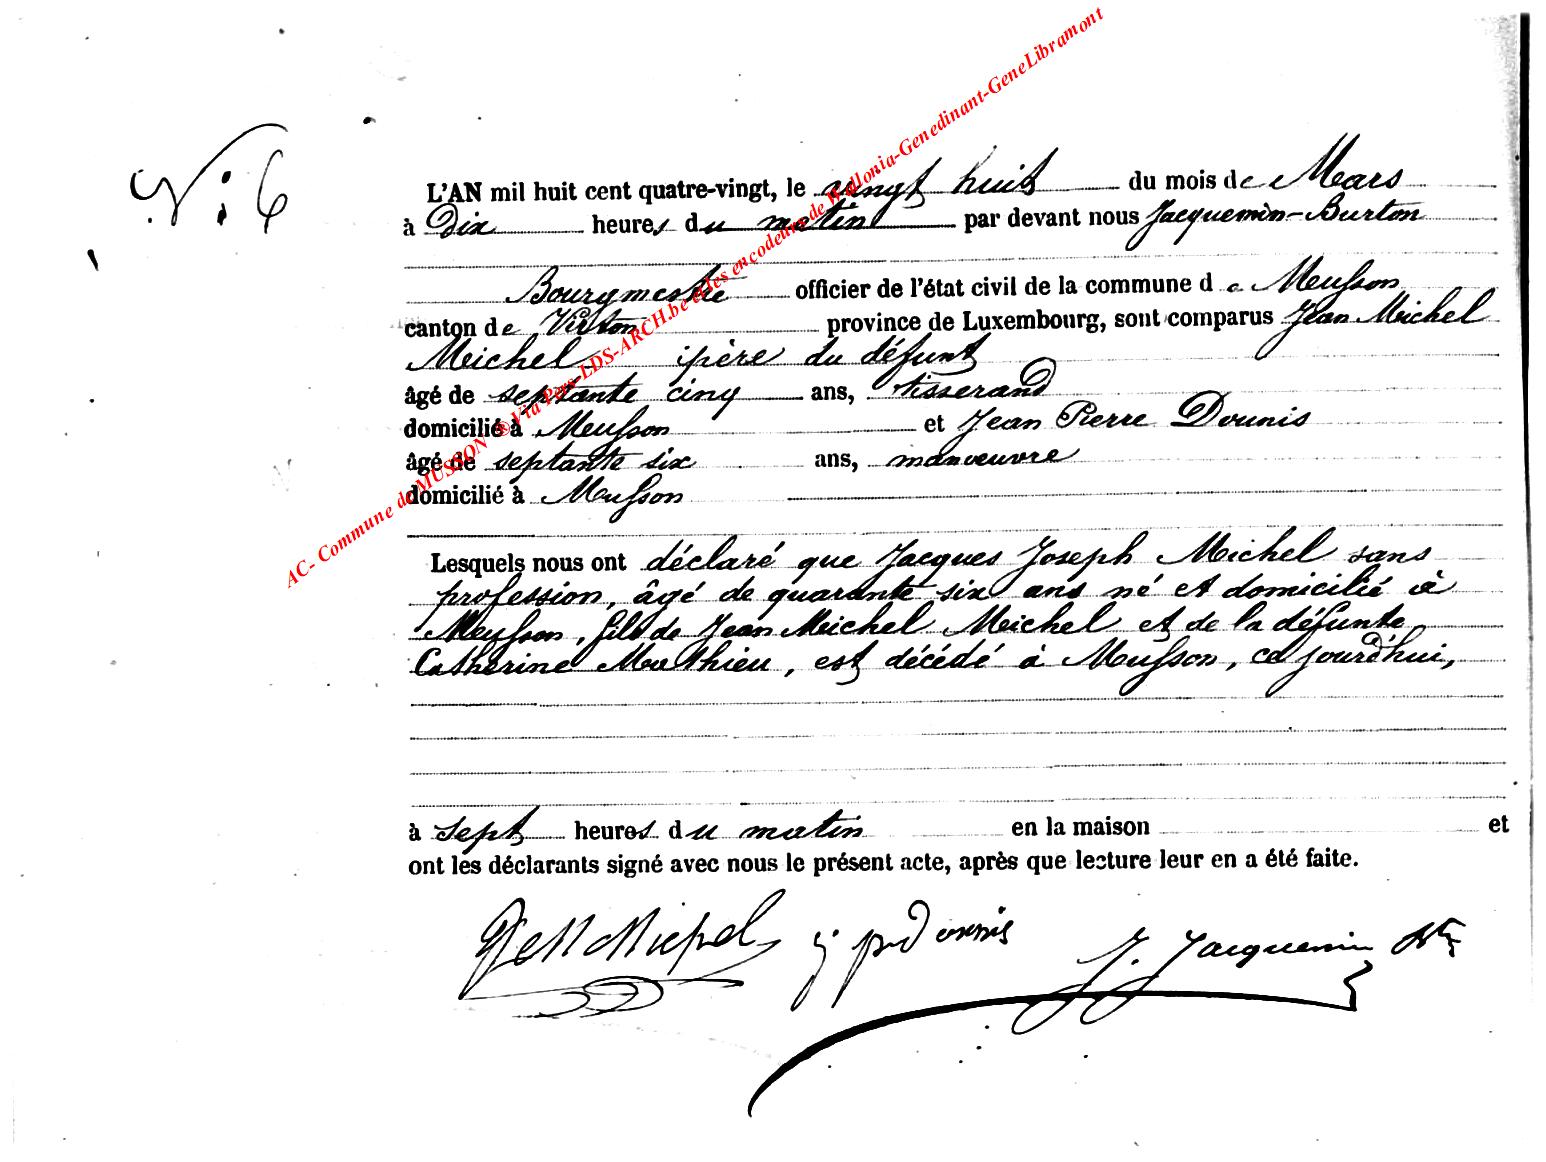 N: 6
L'AN mil huit cent quatre-vingt, le vingt huit du mois de Mars
à Dix heures du matin par devant nous Jacquemin-Burton
Bourgmestre officier de l'état civil de la commune de Musson
canton de Virton province de Luxembourg, sont comparus Jean Michel
Michel père du défunt
âgé de septante cinq ans, tisserand
domicilié à Musson et Jean Pierre Dounis
âgé de septante six ans, manœuvre
domicilié à Musson
Lesquels nous ont déclaré que Jacques Joseph Michel sans
profession, âgé de quarante six ans né et domicilié à
Musson, fils de Jean Michel Michel et de la défunte
Catherine Mathieu, est décédé à Musson, ce jourd'hui,
à sept heures du matin en la maison et
ont les déclarants signé avec nous le présent acte, après que lecture leur en a été faite.
Michel j p Dounis J. Jacquemin
AC- Commune de MUSSON ®Via Pers-LDS-ARCH.be et les encodeurs de Wallonia-Genedinant-GeneLibramont